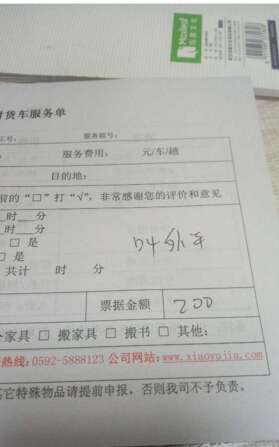 Maxleaf
货车服务单
服务租号:
服务费用: 元/车/趟
目的地:
的“□”打“√”, 非常感谢您的评价和意见
时 分
时 分
□ 是
□ 是
共计 时 分
票据金额 200
家具 □ 搬家具 □ 搬书 □ 其他:
热线:0592-5888123 公司网站:www.xiaoyujia.com
它特殊物品请提前申报, 否则我司不予负责。